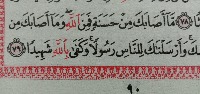 ۝٧٨ مَّآ أَصَابَكَ مِنْ حَسَنَةٍ فَمِنَ ٱللَّهِ وَمَآ أَصَابَكَ مِن
كَ وَأَرْسَلْنَٰكَ لِلنَّاسِ رَسُولًا وَكَفَىٰ بِٱللَّهِ شَهِيدًا ۝٧٩
٩٠